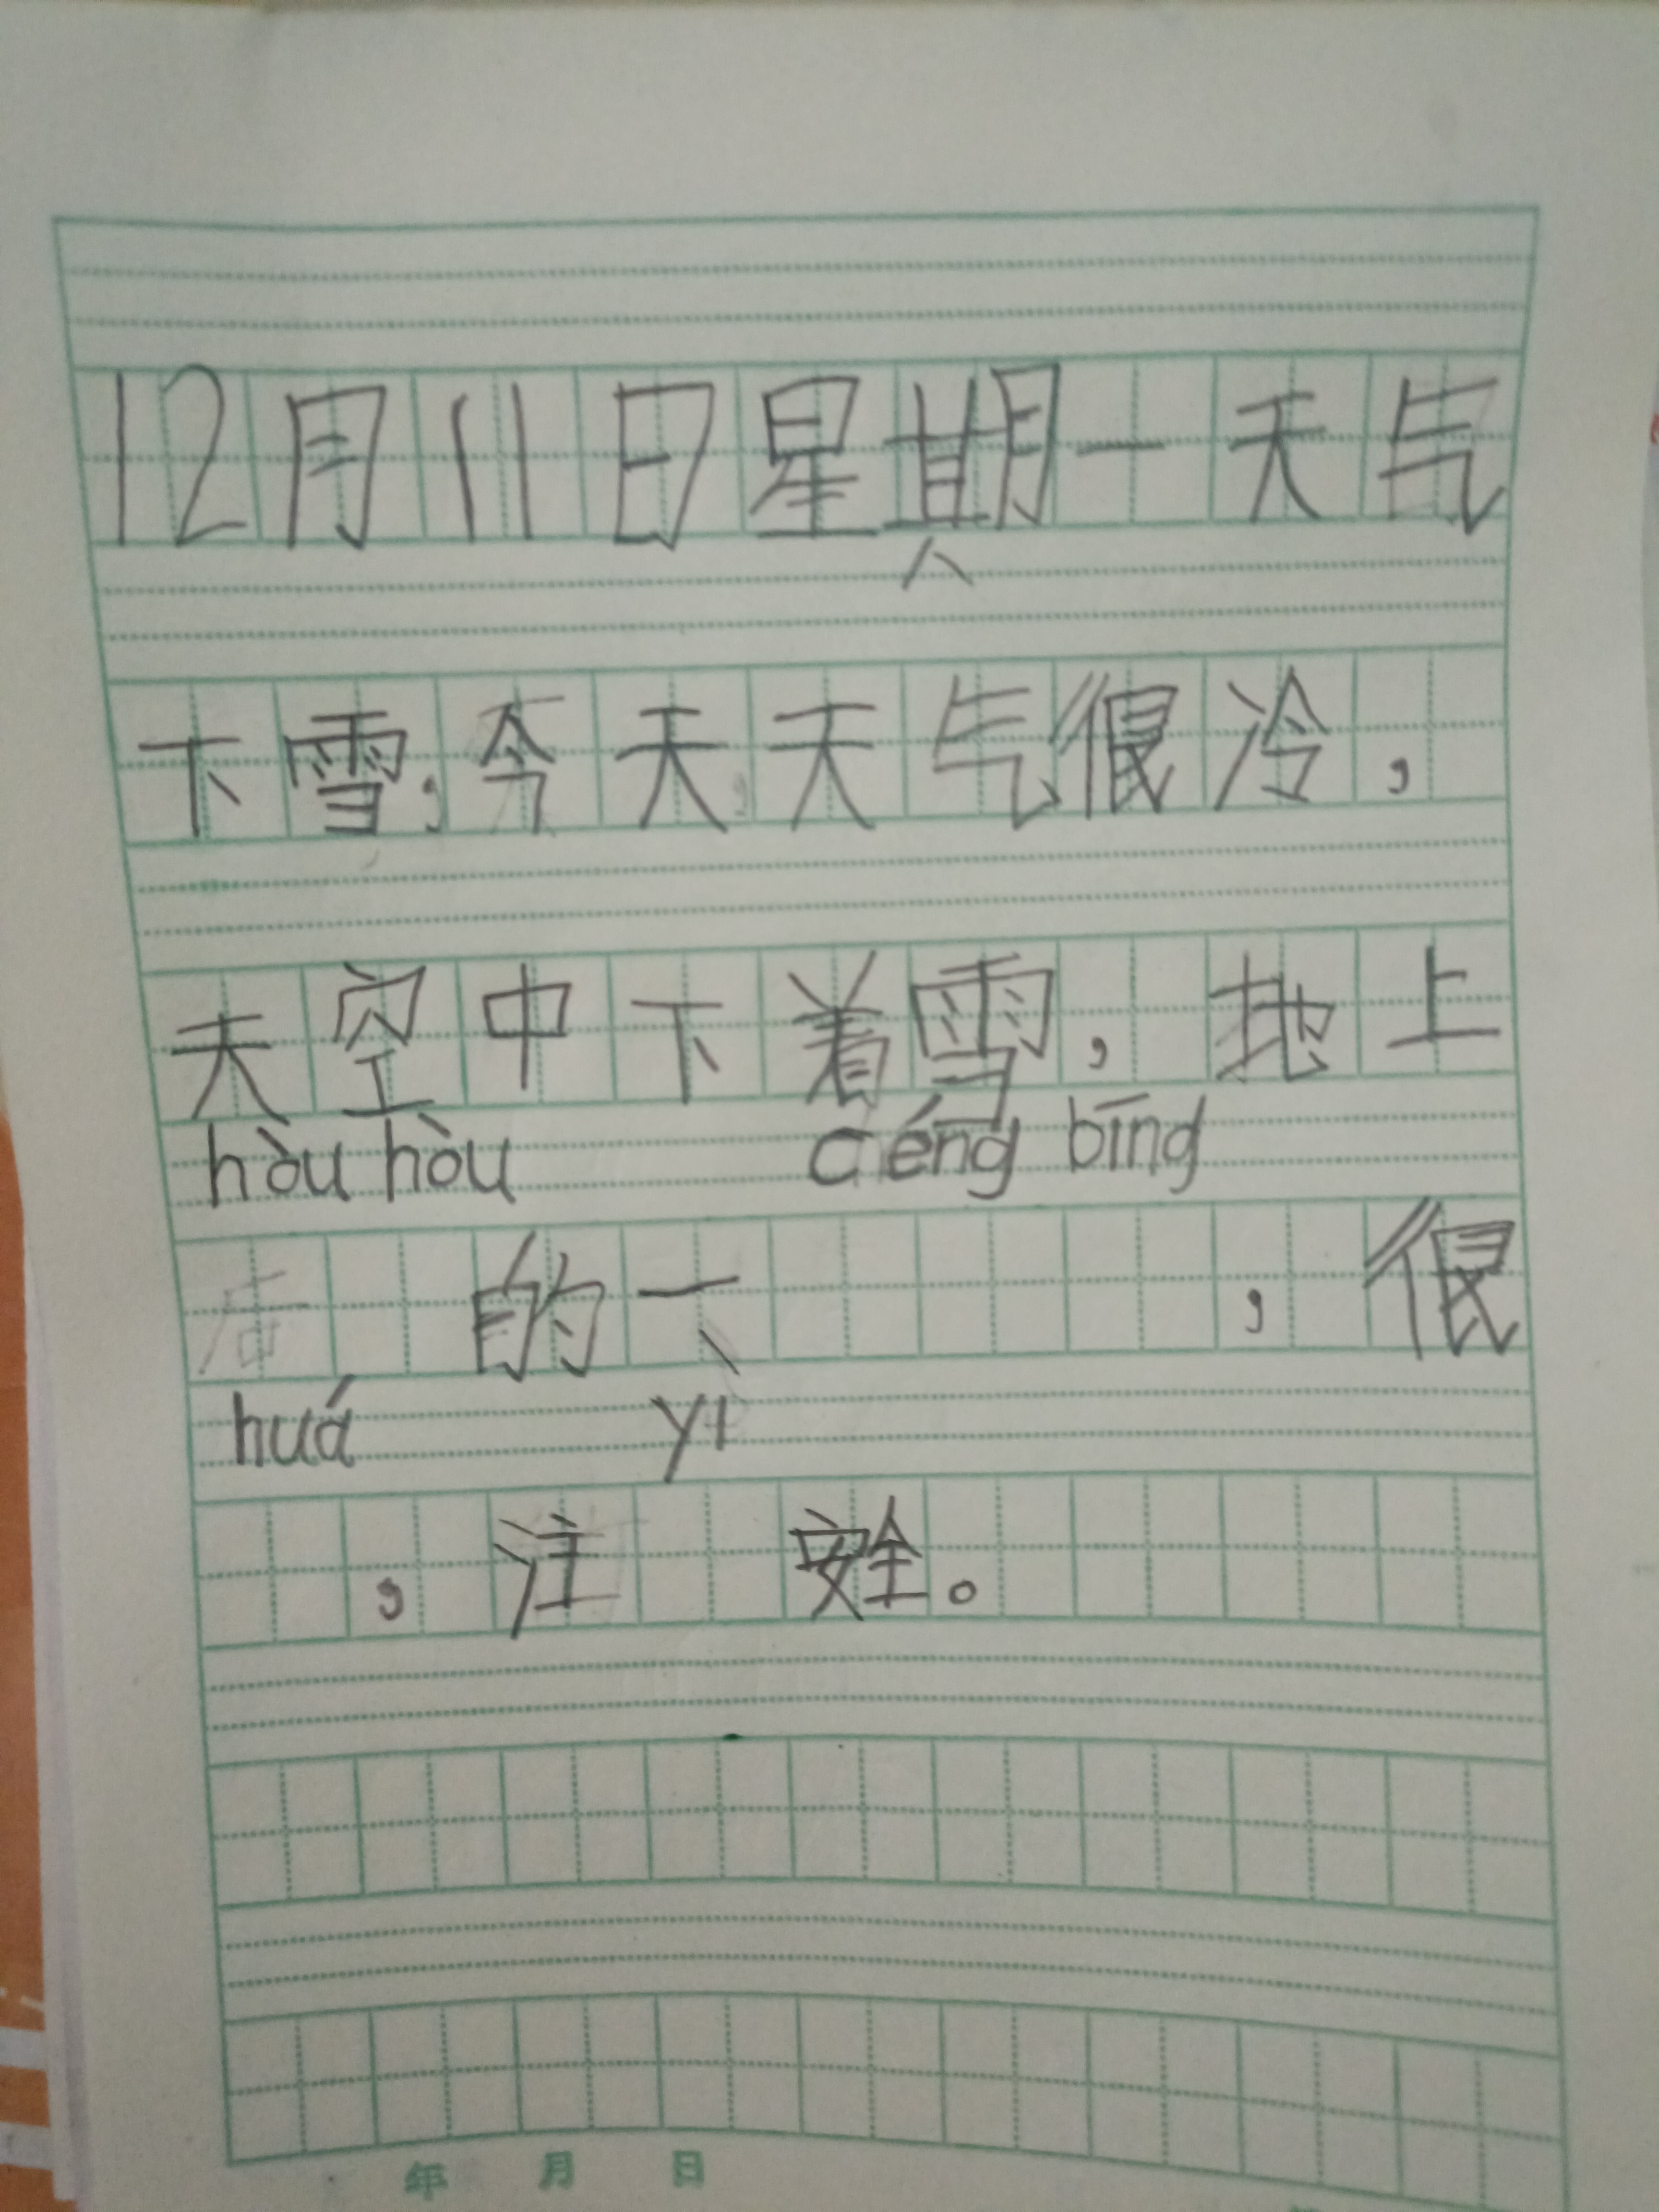 12月11日星期一天气
下雪,今天天气很冷,
天空中下着雪,地上
hòu hòu céng bīng
的一,很
huá yì
,注安全。
年 月 日